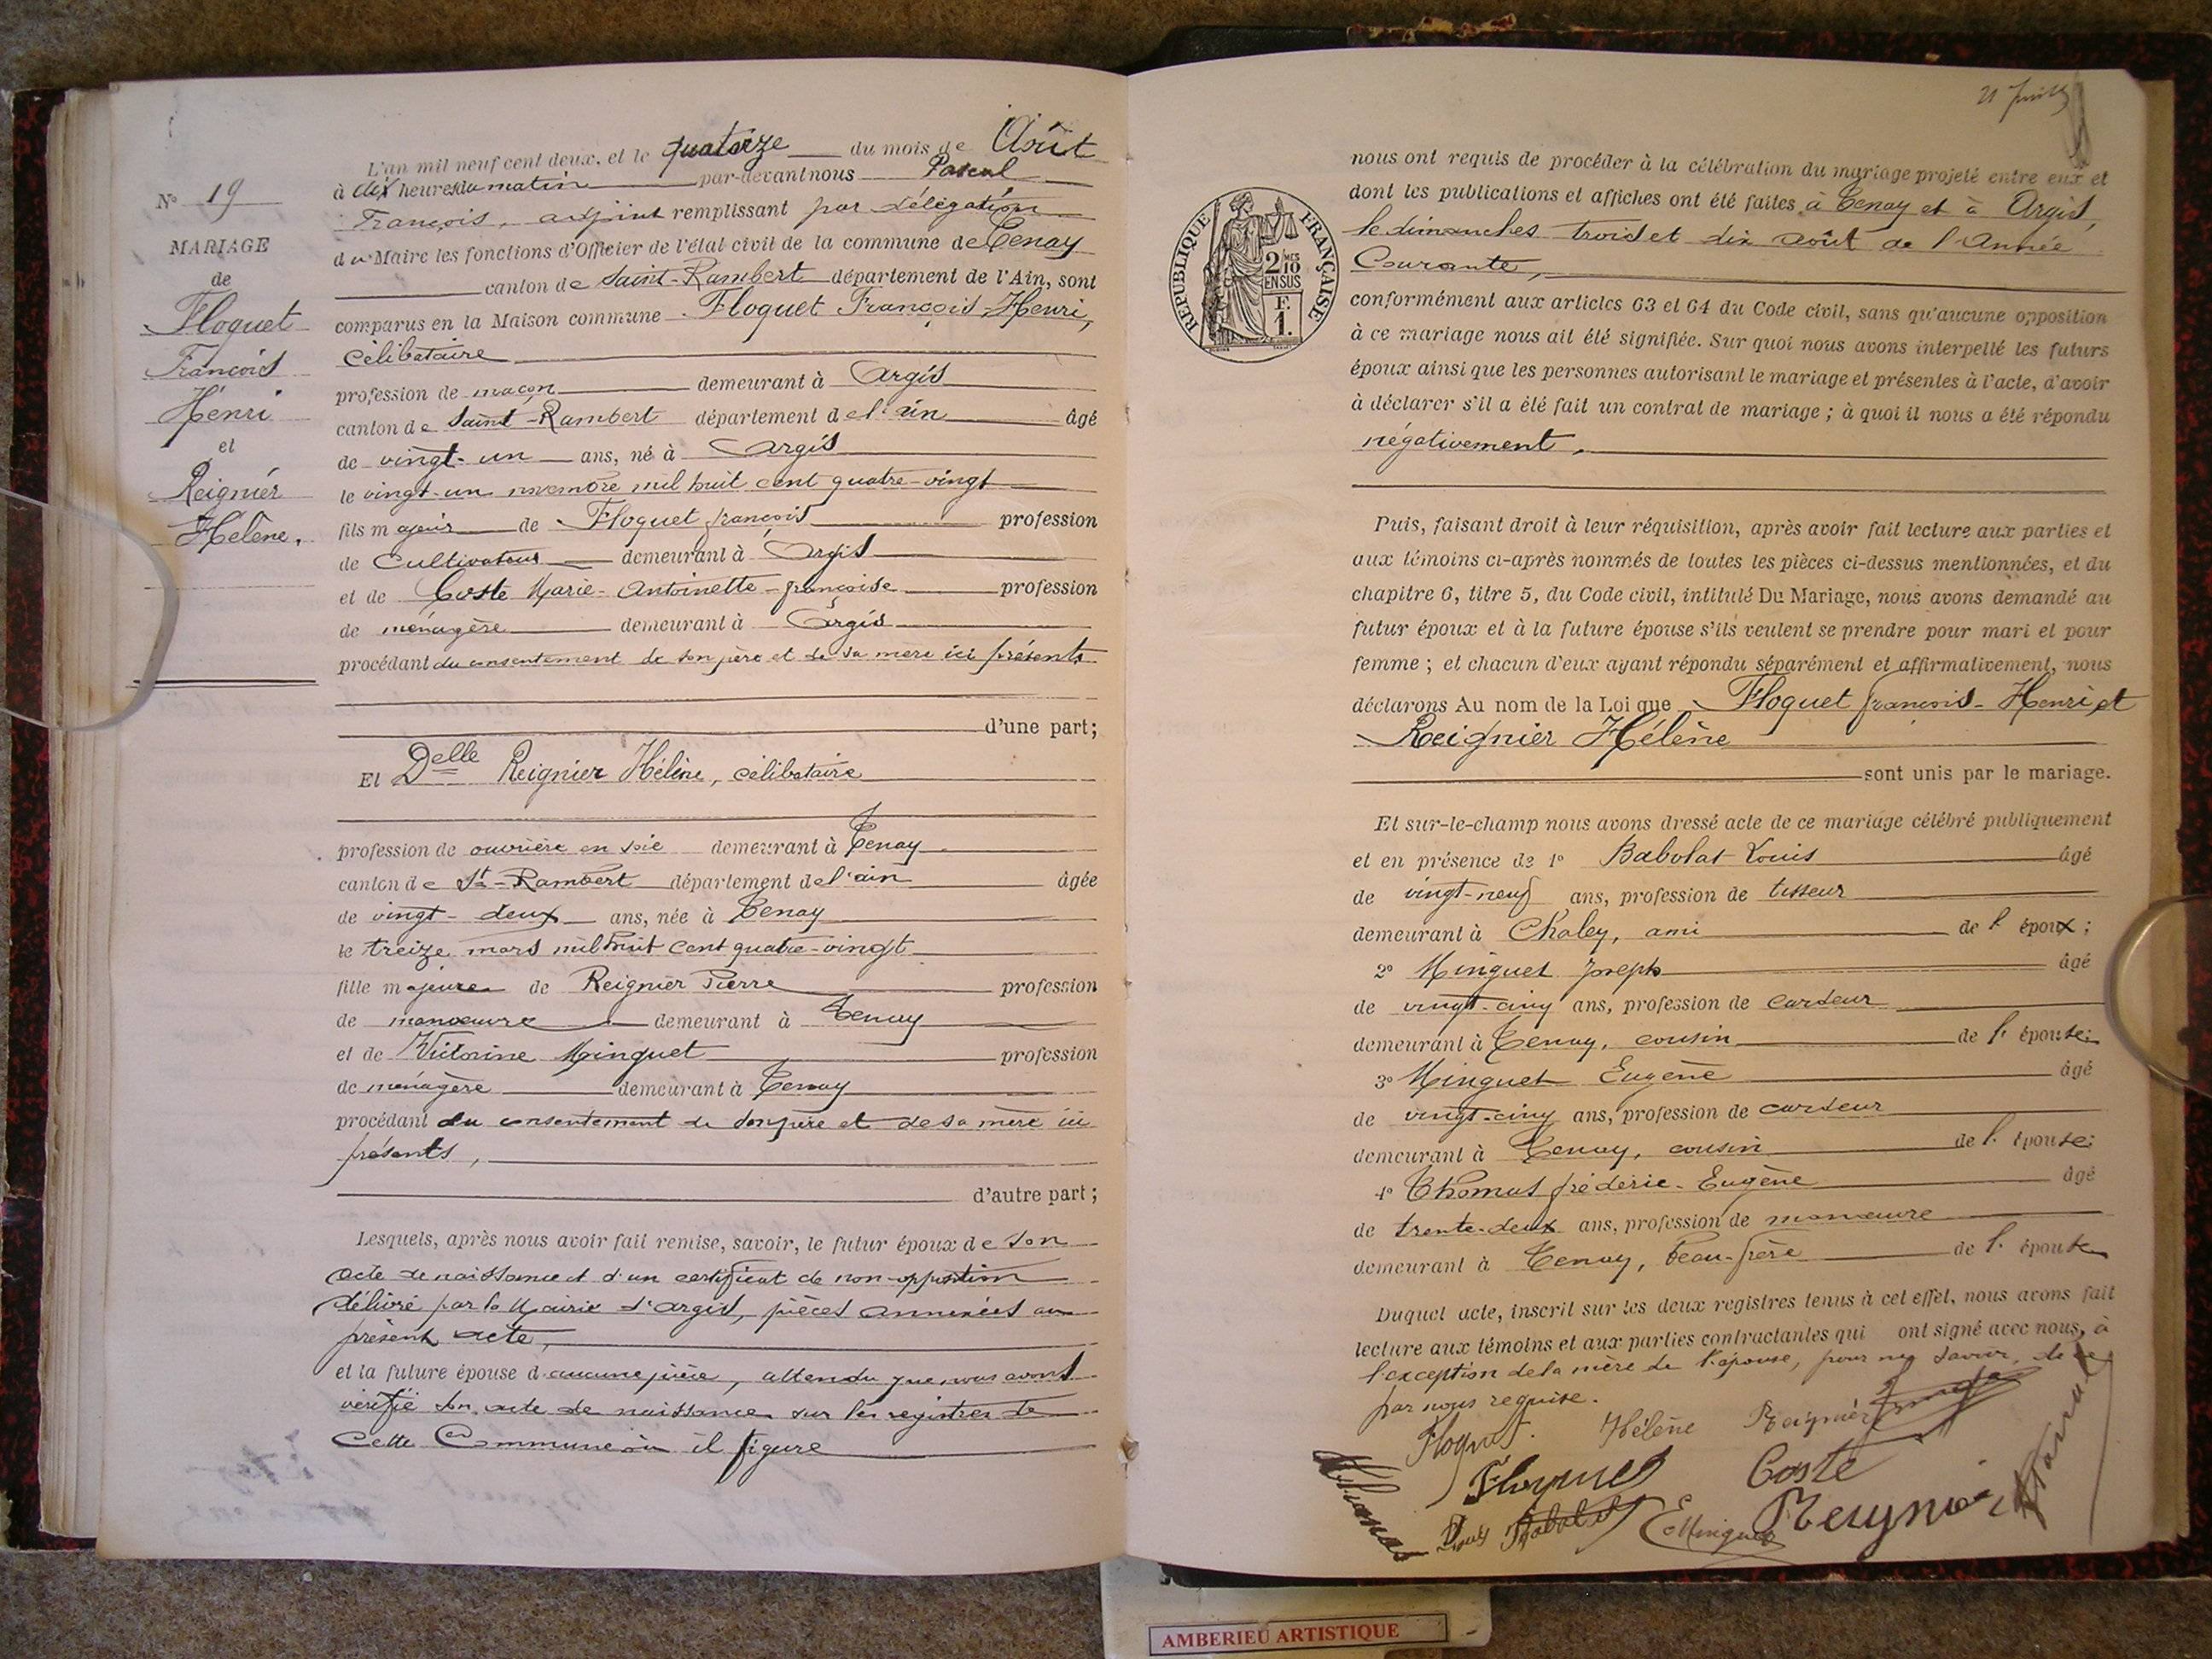 L'an mil neuf cent deux, et le quatorze du mois de Août
à dix heures du matin par-devant nous Pascal
François, adjoint remplissant par délégation
du Maire les fonctions d'Officier de l'état civil de la commune de Tenay
canton de Saint-Rambert département de l'Ain, sont
comparus en la Maison commune Floquet François-Henri,
célibataire
profession de maçon demeurant à Argis
canton de Saint-Rambert département de l'ain âgé
de vingt-un ans, né à Argis
le vingt-un novembre mil huit cent quatre-vingt
fils majeur de Floquet françois profession
de Cultivateur demeurant à Argis
et de Coste Marie-Antoinette-françoise profession
de ménagère demeurant à Argis
procédant du consentement de son père et de sa mère ici présents
d'une part;
Et Delle Reignier Hélène, célibataire
profession de ouvrière en soie demeurant à Tenay
canton de St-Rambert département de l'ain âgée
de vingt-deux ans, née à Tenay
le treize mars mil huit cent quatre-vingt
fille majeure de Reignier Pierre profession
de manœuvre demeurant à Tenay
et de Victorine Minguet profession
de ménagère demeurant à Tenay
procédant du consentement de son père et de sa mère ici
présents,
d'autre part;
Lesquels, après nous avoir fait remise, savoir, le futur époux de son
acte de naissance et d'un certificat de non-opposition
délivré par la Mairie d'argis, pièces annexées au
présent acte,
et la future épouse d'aucune pièce, attendu que nous avons
vérifié son acte de naissance sur les registres de
cette Commune où il figure
No 19
MARIAGE
de
Floquet
François
Henri
et
Reignier
Hélène.
21 Juillet
RÉPUBLIQUE FRANÇAISE
2 MES
10
EN SUS
F.
1.
nous ont requis de procéder à la célébration du mariage projeté entre eux et
dont les publications et affiches ont été faites à Tenay et à Argis,
le dimanches trois et dix août de l'Année
Courante,
conformément aux articles 63 et 64 du Code civil, sans qu'aucune opposition
à ce mariage nous ait été signifiée. Sur quoi nous avons interpellé les futurs
époux ainsi que les personnes autorisant le mariage et présentes à l'acte, d'avoir
à déclarer s'il a été fait un contrat de mariage; à quoi il nous a été répondu
négativement,
Puis, faisant droit à leur réquisition, après avoir fait lecture aux parties et
aux témoins ci-après nommés de toutes les pièces ci-dessus mentionnées, et du
chapitre 6, titre 5, du Code civil, intitulé Du Mariage, nous avons demandé au
futur époux et à la future épouse s'ils veulent se prendre pour mari et pour
femme; et chacun d'eux ayant répondu séparément et affirmativement, nous
déclarons Au nom de la Loi que Floquet françois-Henri et
Reignier Hélène
sont unis par le mariage.
Et sur-le-champ nous avons dressé acte de ce mariage célébré publiquement
et en présence de 1o Babolat Louis âgé
de vingt-neuf ans, profession de tisseur
demeurant à Chaley, ami de l'époux;
2o Minguet Joseph âgé
de vingt-cinq ans, profession de cardeur
demeurant à Tenay, cousin de l'épouse;
3o Minguet Eugène âgé
de vingt-cinq ans, profession de cardeur
demeurant à Tenay, cousin de l'épouse;
4o Thomas fréderic-Eugène âgé
de trente-deux ans, profession de manœuvre
demeurant à Tenay, beau-frère de l'épouse
Duquel acte, inscrit sur les deux registres tenus à cet effet, nous avons fait
lecture aux témoins et aux parties contractantes qui ont signé avec nous, à
l'exception de la mère de l'épouse, pour ne savoir, de ce
par nous requise.
Floquet Hélène Reignier
Floquet Coste
Thomas Louis Babolat E Minguet Reignier Pascal
AMBERIEU ARTISTIQUE